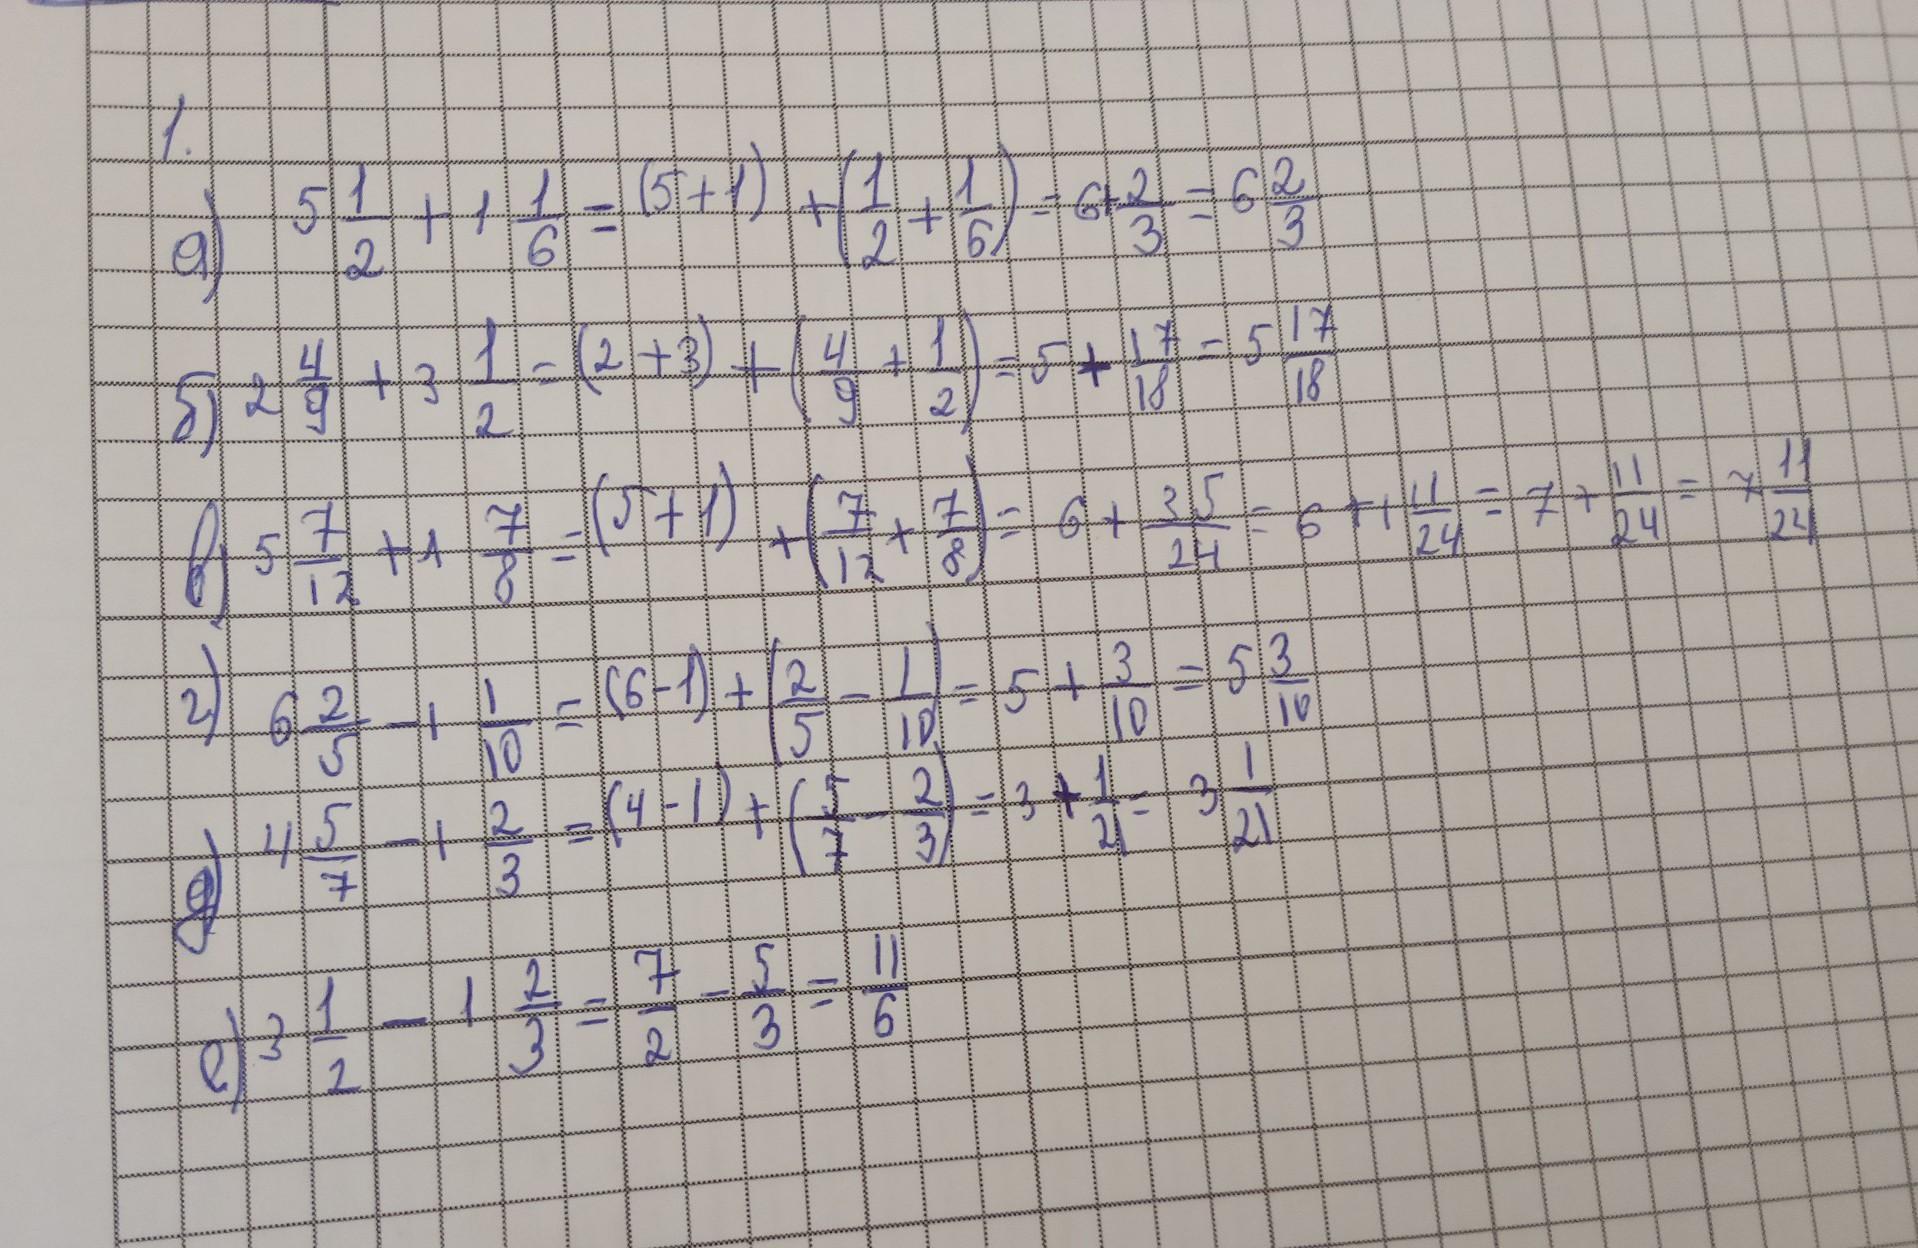 1.
а) 5 1/2 + 1 1/6 = (5+1) + (1/2 + 1/6) = 6 + 2/3 = 6 2/3
б) 2 4/9 + 3 1/2 = (2+3) + (4/9 + 1/2) = 5 + 17/18 = 5 17/18
в) 5 7/12 + 1 7/8 = (5+1) + (7/12 + 7/8) = 6 + 35/24 = 6 + 1 11/24 = 7 + 11/24 = 7 11/24
г) 6 2/5 - 1 1/10 = (6-1) + (2/5 - 1/10) = 5 + 3/10 = 5 3/10
д) 4 5/7 - 1 2/3 = (4-1) + (5/7 - 2/3) = 3 + 1/21 = 3 1/21
е) 3 1/2 - 1 2/3 = 7/2 - 5/3 = 11/6